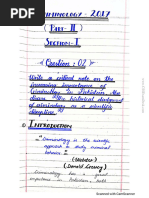 CRIMINOLOGY - 2017
( PART - II )
SECTION-I
< Question : 02 >
Write a critical note on the
increasing importance of
Criminology in Pakistan. Also
discuss the historical background
of criminology as a scientific
discipline.
① INTRODUCTION
"Criminology is the scientific
approach to study criminal
behavior."
Criminology has a great
importance in Pakistan
Scanned with CamScanner